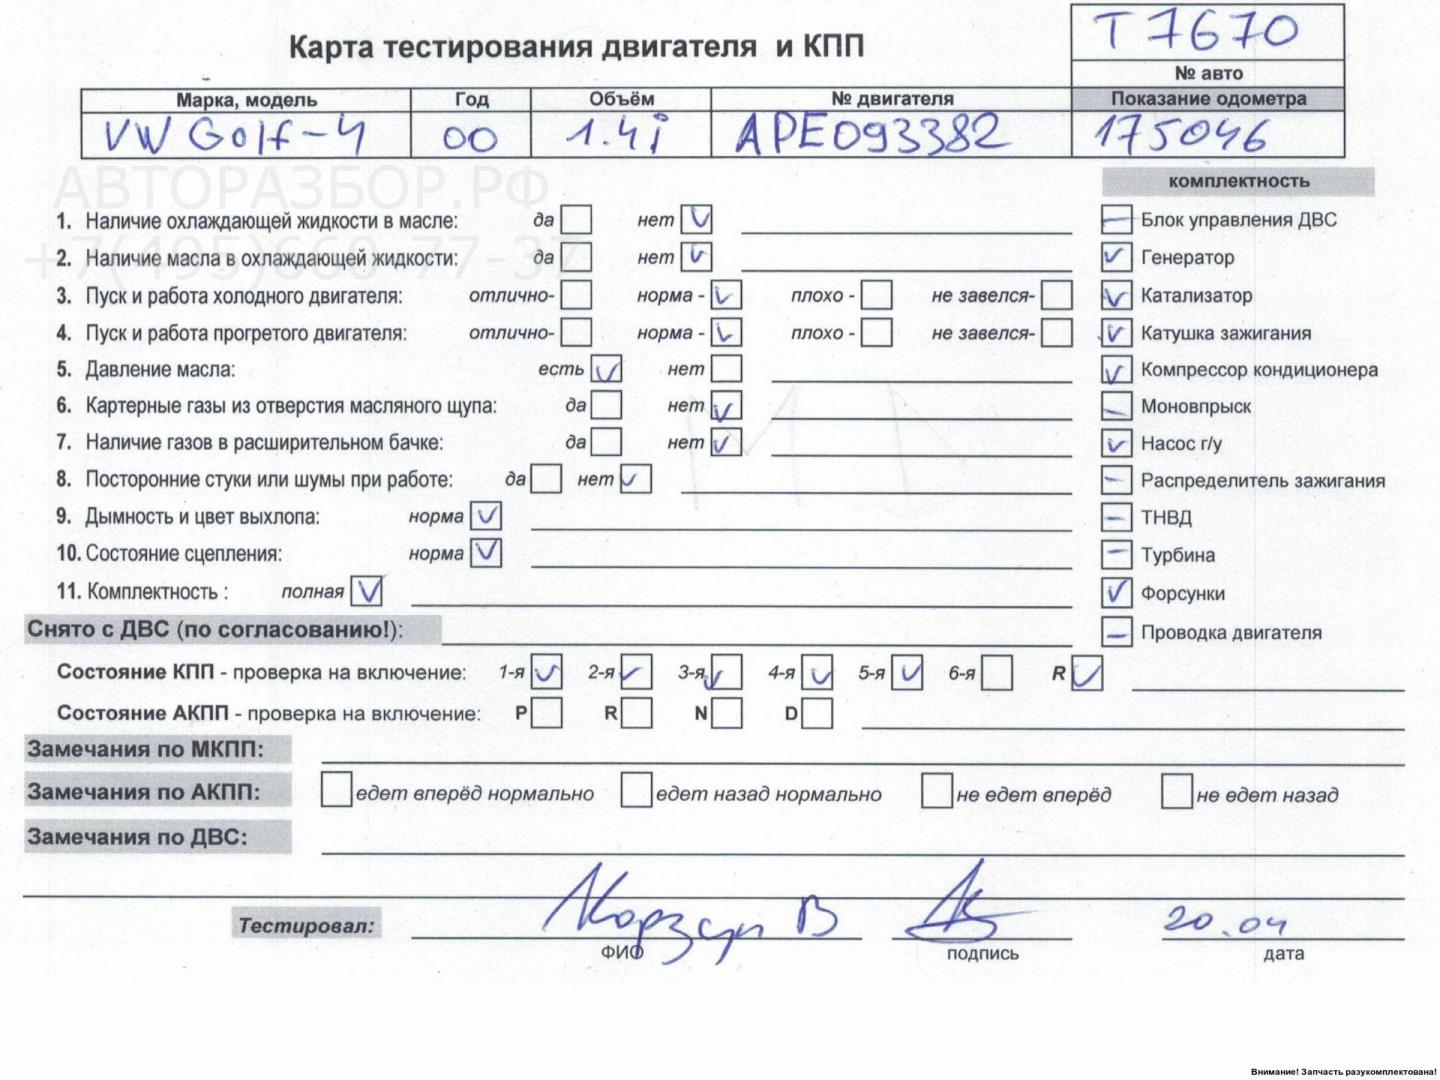 Т 7670
Карта тестирования двигателя и КПП
№ авто
Марка, модель Год Объём № двигателя Показание одометра
VW Golf-4 00 1.4i APE093382 175046
АВТОРАЗБОР.РФ
комплектность
1. Наличие охлаждающей жидкости в масле: да нет Блок управления ДВС
+7(495)668-77-37
2. Наличие масла в охлаждающей жидкости: да нет Генератор
3. Пуск и работа холодного двигателя: отлично- норма - плохо - не завелся- Катализатор
4. Пуск и работа прогретого двигателя: отлично- норма - плохо - не завелся- Катушка зажигания
5. Давление масла: есть нет Компрессор кондиционера
6. Картерные газы из отверстия масляного щупа: да нет Моновпрыск
7. Наличие газов в расширительном бачке: да нет Насос г/у
8. Посторонние стуки или шумы при работе: да нет Распределитель зажигания
9. Дымность и цвет выхлопа: норма ТНВД
10. Состояние сцепления: норма Турбина
11. Комплектность : полная Форсунки
Снято с ДВС (по согласованию!): Проводка двигателя
Состояние КПП - проверка на включение: 1-я 2-я 3-я 4-я 5-я 6-я R
Состояние АКПП - проверка на включение: P R N D
Замечания по МКПП:
Замечания по АКПП: едет вперёд нормально едет назад нормально не едет вперёд не едет назад
Замечания по ДВС:
Тестировал: В 20.04
ФИО подпись дата
Внимание! Запчасть разукомплектована!